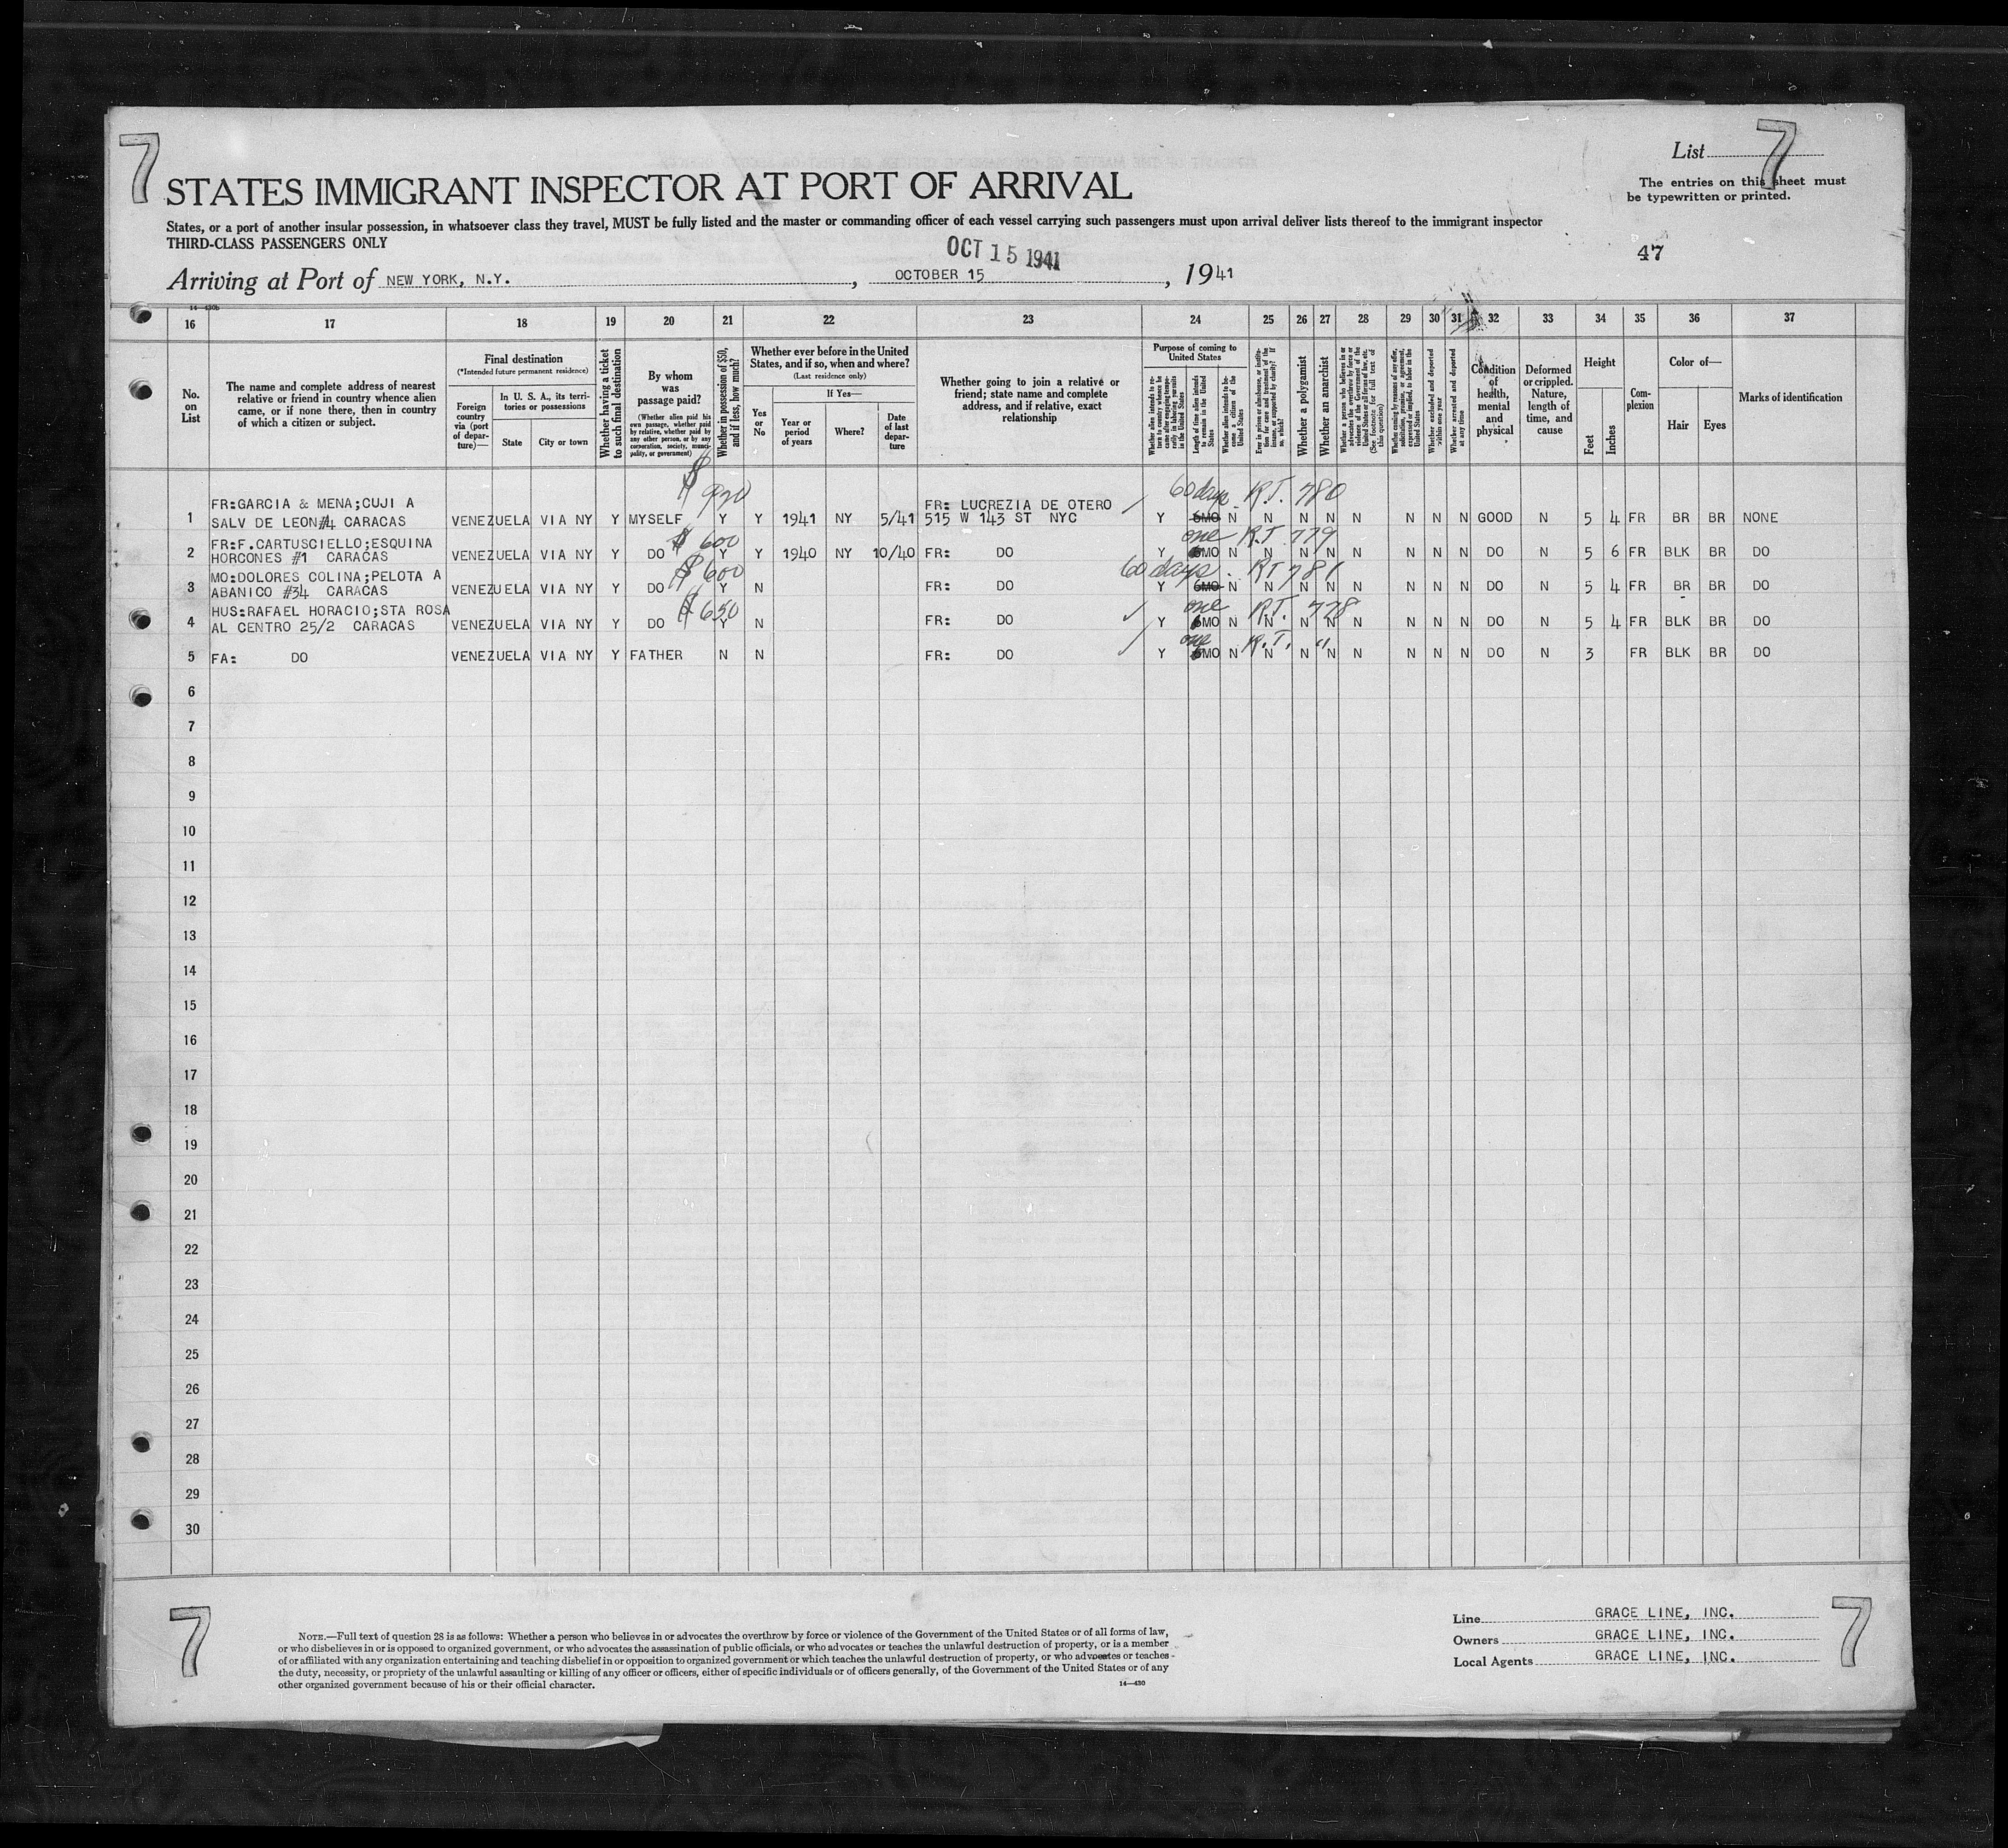 7
List 7
STATES IMMIGRANT INSPECTOR AT PORT OF ARRIVAL
The entries on this sheet must
be typewritten or printed.
States, or a port of another insular possession, in whatsoever class they travel, MUST be fully listed and the master or commanding officer of each vessel carrying such passengers must upon arrival deliver lists thereof to the immigrant inspector
THIRD-CLASS PASSENGERS ONLY
OCT 15 1941
47
Arriving at Port of NEW YORK, N.Y. , OCTOBER 15 , 1941
16 17 18 19 20 21 22 23 24 25 26 27 28 29 30 31 32 33 34 35 36 37
No. on List
The name and complete address of nearest relative or friend in country whence alien came, or if none there, then in country of which a citizen or subject.
Final destination
(*Intended future permanent residence)
Foreign country via (port of departure)—
In U. S. A., its territories or possessions
State
City or town
Whether having a ticket to such final destination
By whom was passage paid?
(Whether alien paid his own passage, whether paid by relative, whether paid by any other person, or by any corporation, society, municipality, or government)
Whether in possession of $50, and if less, how much?
Whether ever before in the United States, and if so, when and where?
(Last residence only)
Yes or No
If Yes—
Year or period of years
Where?
Date of last departure
Whether going to join a relative or friend; state name and complete address, and if relative, exact relationship
Purpose of coming to United States
Length of time alien intends to remain in the United States
Whether alien intends to become a citizen of the United States
Whether a polygamist
Whether an anarchist
Whether excluded and deported within one year
Whether arrested and deported at any time
Condition of health, mental and physical
Deformed or crippled. Nature, length of time, and cause
Height
Feet
Inches
Complexion
Color of—
Hair
Eyes
Marks of identification
$ 920 60 days R.T. 780
FR:GARCIA & MENA;CUJI A FR: LUCREZIA DE OTERO
1 SALV DE LEON#4 CARACAS VENEZUELA VIA NY Y MYSELF Y Y 1941 NY 5/41 515 W 143 ST NYC Y 6MO N N N N N N N N GOOD N 5 4 FR BR BR NONE
$ 600 one R.T. 779
FR:F.CARTUSCIELLO;ESQUINA
2 HORCONES #1 CARACAS VENEZUELA VIA NY Y DO Y Y 1940 NY 10/40 FR: DO Y 6MO N N N N N N N N DO N 5 6 FR BLK BR DO
$ 600 60 days RT 781
MO:DOLORES COLINA;PELOTA A
3 ABANICO #34 CARACAS VENEZUELA VIA NY Y DO Y N FR: DO Y 6MO N N N N N N N N DO N 5 4 FR BR BR DO
$ 650 one R.T. 778
HUS:RAFAEL HORACIO;STA ROSA
4 AL CENTRO 25/2 CARACAS VENEZUELA VIA NY Y DO Y N FR: DO Y 6MO N N N N N N N N DO N 5 4 FR BLK BR DO
one R.T. "
5 FA: DO VENEZUELA VIA NY Y FATHER N N FR: DO Y 6MO N N N N N N N N DO N 3 FR BLK BR DO
6
7
8
9
10
11
12
13
14
15
16
17
18
19
20
21
22
23
24
25
26
27
28
29
30
7
NOTE.—Full text of question 28 is as follows: Whether a person who believes in or advocates the overthrow by force or violence of the Government of the United States or of all forms of law,
or who disbelieves in or is opposed to organized government, or who advocates the assassination of public officials, or who advocates or teaches the unlawful destruction of property, or is a member
of or affiliated with any organization entertaining and teaching disbelief in or opposition to organized government or which teaches the unlawful destruction of property, or who advocates or teaches
the duty, necessity, or propriety of the unlawful assaulting or killing of any officer or officers, either of specific individuals or of officers generally, of the Government of the United States or of any
other organized government because of his or their official character.
14—430
Line GRACE LINE, INC.
Owners GRACE LINE, INC.
Local Agents GRACE LINE, INC.
7